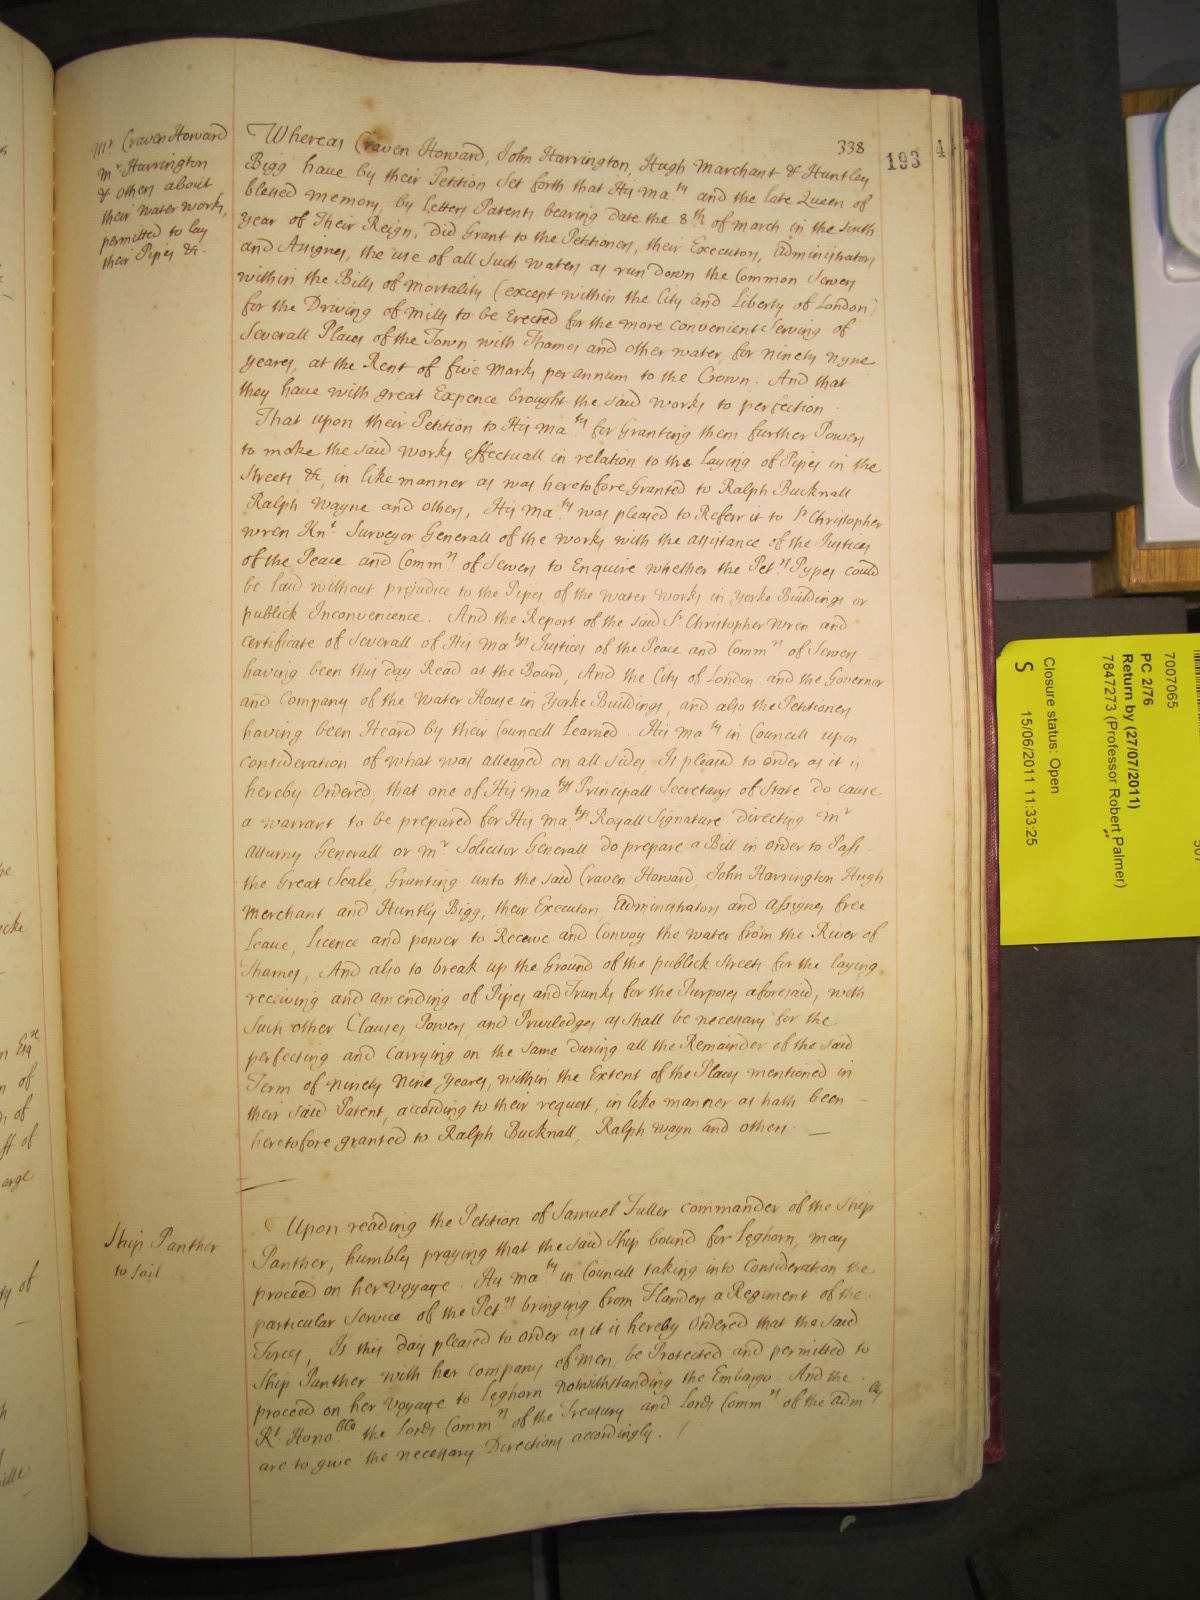 338
193
4
Mr Craven Howard
Mr Harrington
& others about
their water works,
permitted to lay
their Pipes &c.
Whereas Craven Howard, John Harrington, Hugh Marchant & Huntley
Bigg have by their Petition set forth that His Ma.ty and the late Queen of
blessed memory, by Letters Patents bearing date the 8th of march in the sixth
year of Their Reign, did Grant to the Petitioners, their Executors, Administrators
and Assignes, the use of all such waters as run down the Common Sewers
within the Bills of mortality (except within the City and Liberty of London)
for the Driving of mills to be Erected for the more convenient Serving of
Severall Places of the Town with Thames and other water, for ninety nyne
yeares, at the Rent of five marks per annum to the Crown. And that
they have with great Expence brought the said works to perfection.
That upon their Petition to His Ma.ty for Granting them further Powers
to make the said works effectuall in relation to the Laying of Pipes in the
Streets &c, in like manner as was heretofore Granted to Ralph Bucknall
Ralph Wayne and others, His Ma.ty was pleased to Referr it to Sr Christopher
wren Knt Surveyor Generall of the works with the assistance of the Justices
of the Peace and Comm.rs of Sewers to Enquire whether the Pet.rs Pypes could
be laid without prejudice to the Pipes of the water works in Yorke Buildings or
publick Inconvenience. And the Report of the said Sr Christopher Wren and
certificate of Severall of His Ma.tys Justices of the Peace and Comm.rs of Sewers
having been this day Read at the Board, And the City of London and the Governor
and Company of the Water House in Yorke Buildings, and also the Petitioners
having been Heard by their Councell Learned. His Ma.ty in Councill upon
consideration of what was alleaged on all sides, Is pleased to order as it is
hereby Ordered, that one of His Ma.tys Principall Secretarys of State do cause
a warrant to be prepared for His Ma.tys Royall Signature directing Mr
Atturny Generall or Mr Solicitor Generall do prepare a Bill in order to Pass
the Great Seale, Granting unto the said Craven Howard, John Harrington Hugh
Merchant and Huntly Bigg, their Executors Administrators and Assignes free
Leave, licence and power to Receive and Convoy the water from the River of
Thames, And also to break up the Ground of the publick Streets for the laying
receiving and amending of Pipes and Trunks for the Purposes aforesaid, with
such other Clauses, Powers, and Priviledges as shall be necessary for the
perfecting and carrying on the same during all the Remainder of the said
Term of ninety nine yeares, within the Extent of the Places mentioned in
their said Patent, according to their request, in like manner as hath been
heretofore granted to Ralph Bucknall, Ralph Wayn and others.
Ship Panther
to sail
Upon reading the Petition of Samuel Fuller commander of the ship
Panther, humbly praying that the said Ship bound for Leghorn, may
proceed on her voyage. His Ma.ty in Councill taking into Consideration the
particular Service of the Pet.rs bringing from Flanders a Regiment of the
Forces, Is this day pleased to order as it is hereby Ordered that the said
Ship Panther with her Company of men, be Protected and permitted to
proceed on her voyage to Leghorn notwithstanding the Embargo. And the
Rt Honoble the Lords Comm.rs of the Treasury and Lords Comm.rs of the Adm.lty
are to give the necessary Directions accordingly.
7007065
PC 2/76
Return by (27/07/2011)
7847273 (Professor Robert Palmer)
Closure status: Open
S 15/06/2011 11:33:25